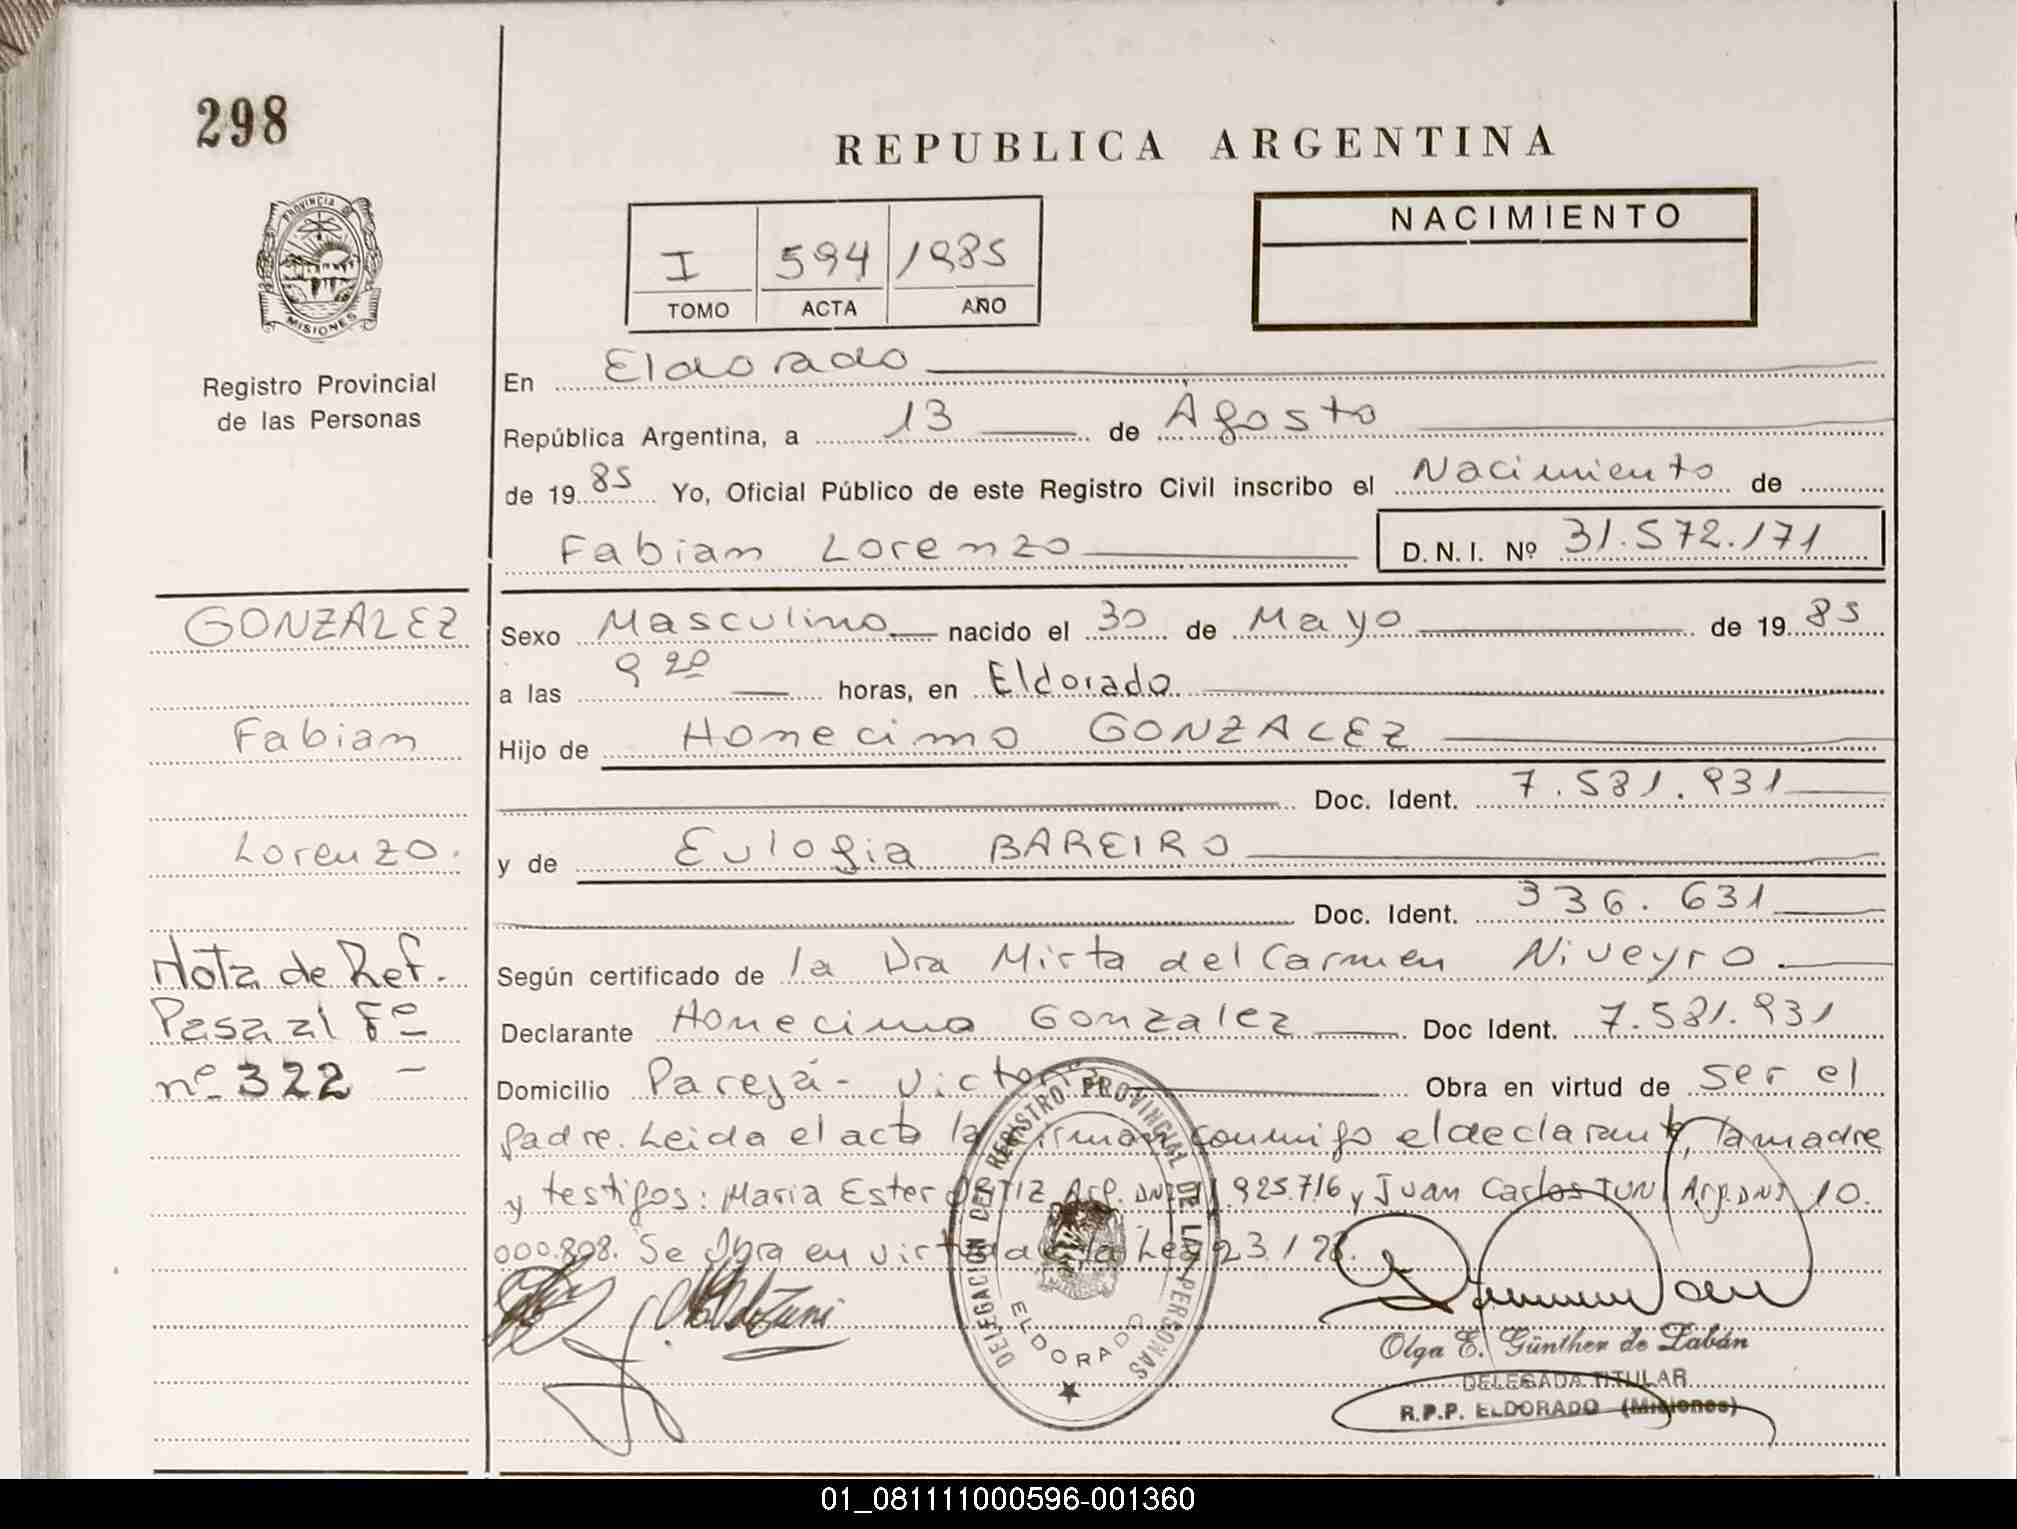 298
REPUBLICA ARGENTINA
PROVINCIA DE
MISIONES
Registro Provincial
de las Personas
I 594 1985
TOMO ACTA AÑO
NACIMIENTO
En Eldorado
República Argentina, a 13 de Agosto
de 1985 Yo, Oficial Público de este Registro Civil inscribo el Nacimiento de
Fabian Lorenzo D.N.I. Nº 31.572.171
GONZALEZ
Fabian
Lorenzo.
Nota de Ref.
Pasa al Fº
nº 322 -
Sexo Masculino nacido el 30 de Mayo de 1985
a las 9 20 horas, en Eldorado
Hijo de Honecimo GONZALEZ
Doc. Ident. 7.581.931
y de Eulogia BAREIRO
Doc. Ident. 336.631
Según certificado de la Dra Mirta del Carmen Niveyro.
Declarante Honecimo Gonzalez Doc Ident. 7.581.931
Domicilio Parejá - Victoria Obra en virtud de ser el
padre. Leida el acta la firman conmigo el declarante, la madre
y testigos: Maria Ester ORTIZ Arg. DNI 925.716 y Juan Carlos TUNI Arg. DNI 10.
000.808. Se Obra en virtud de la Ley 23.128.
DELEGACIÓN DEL REGISTRO PROVINCIAL DE LAS PERSONAS
ELDORADO
Olga E. Günther de Zabán
DELEGADA TITULAR
R.P.P. ELDORADO (Misiones)
01_081111000596-001360